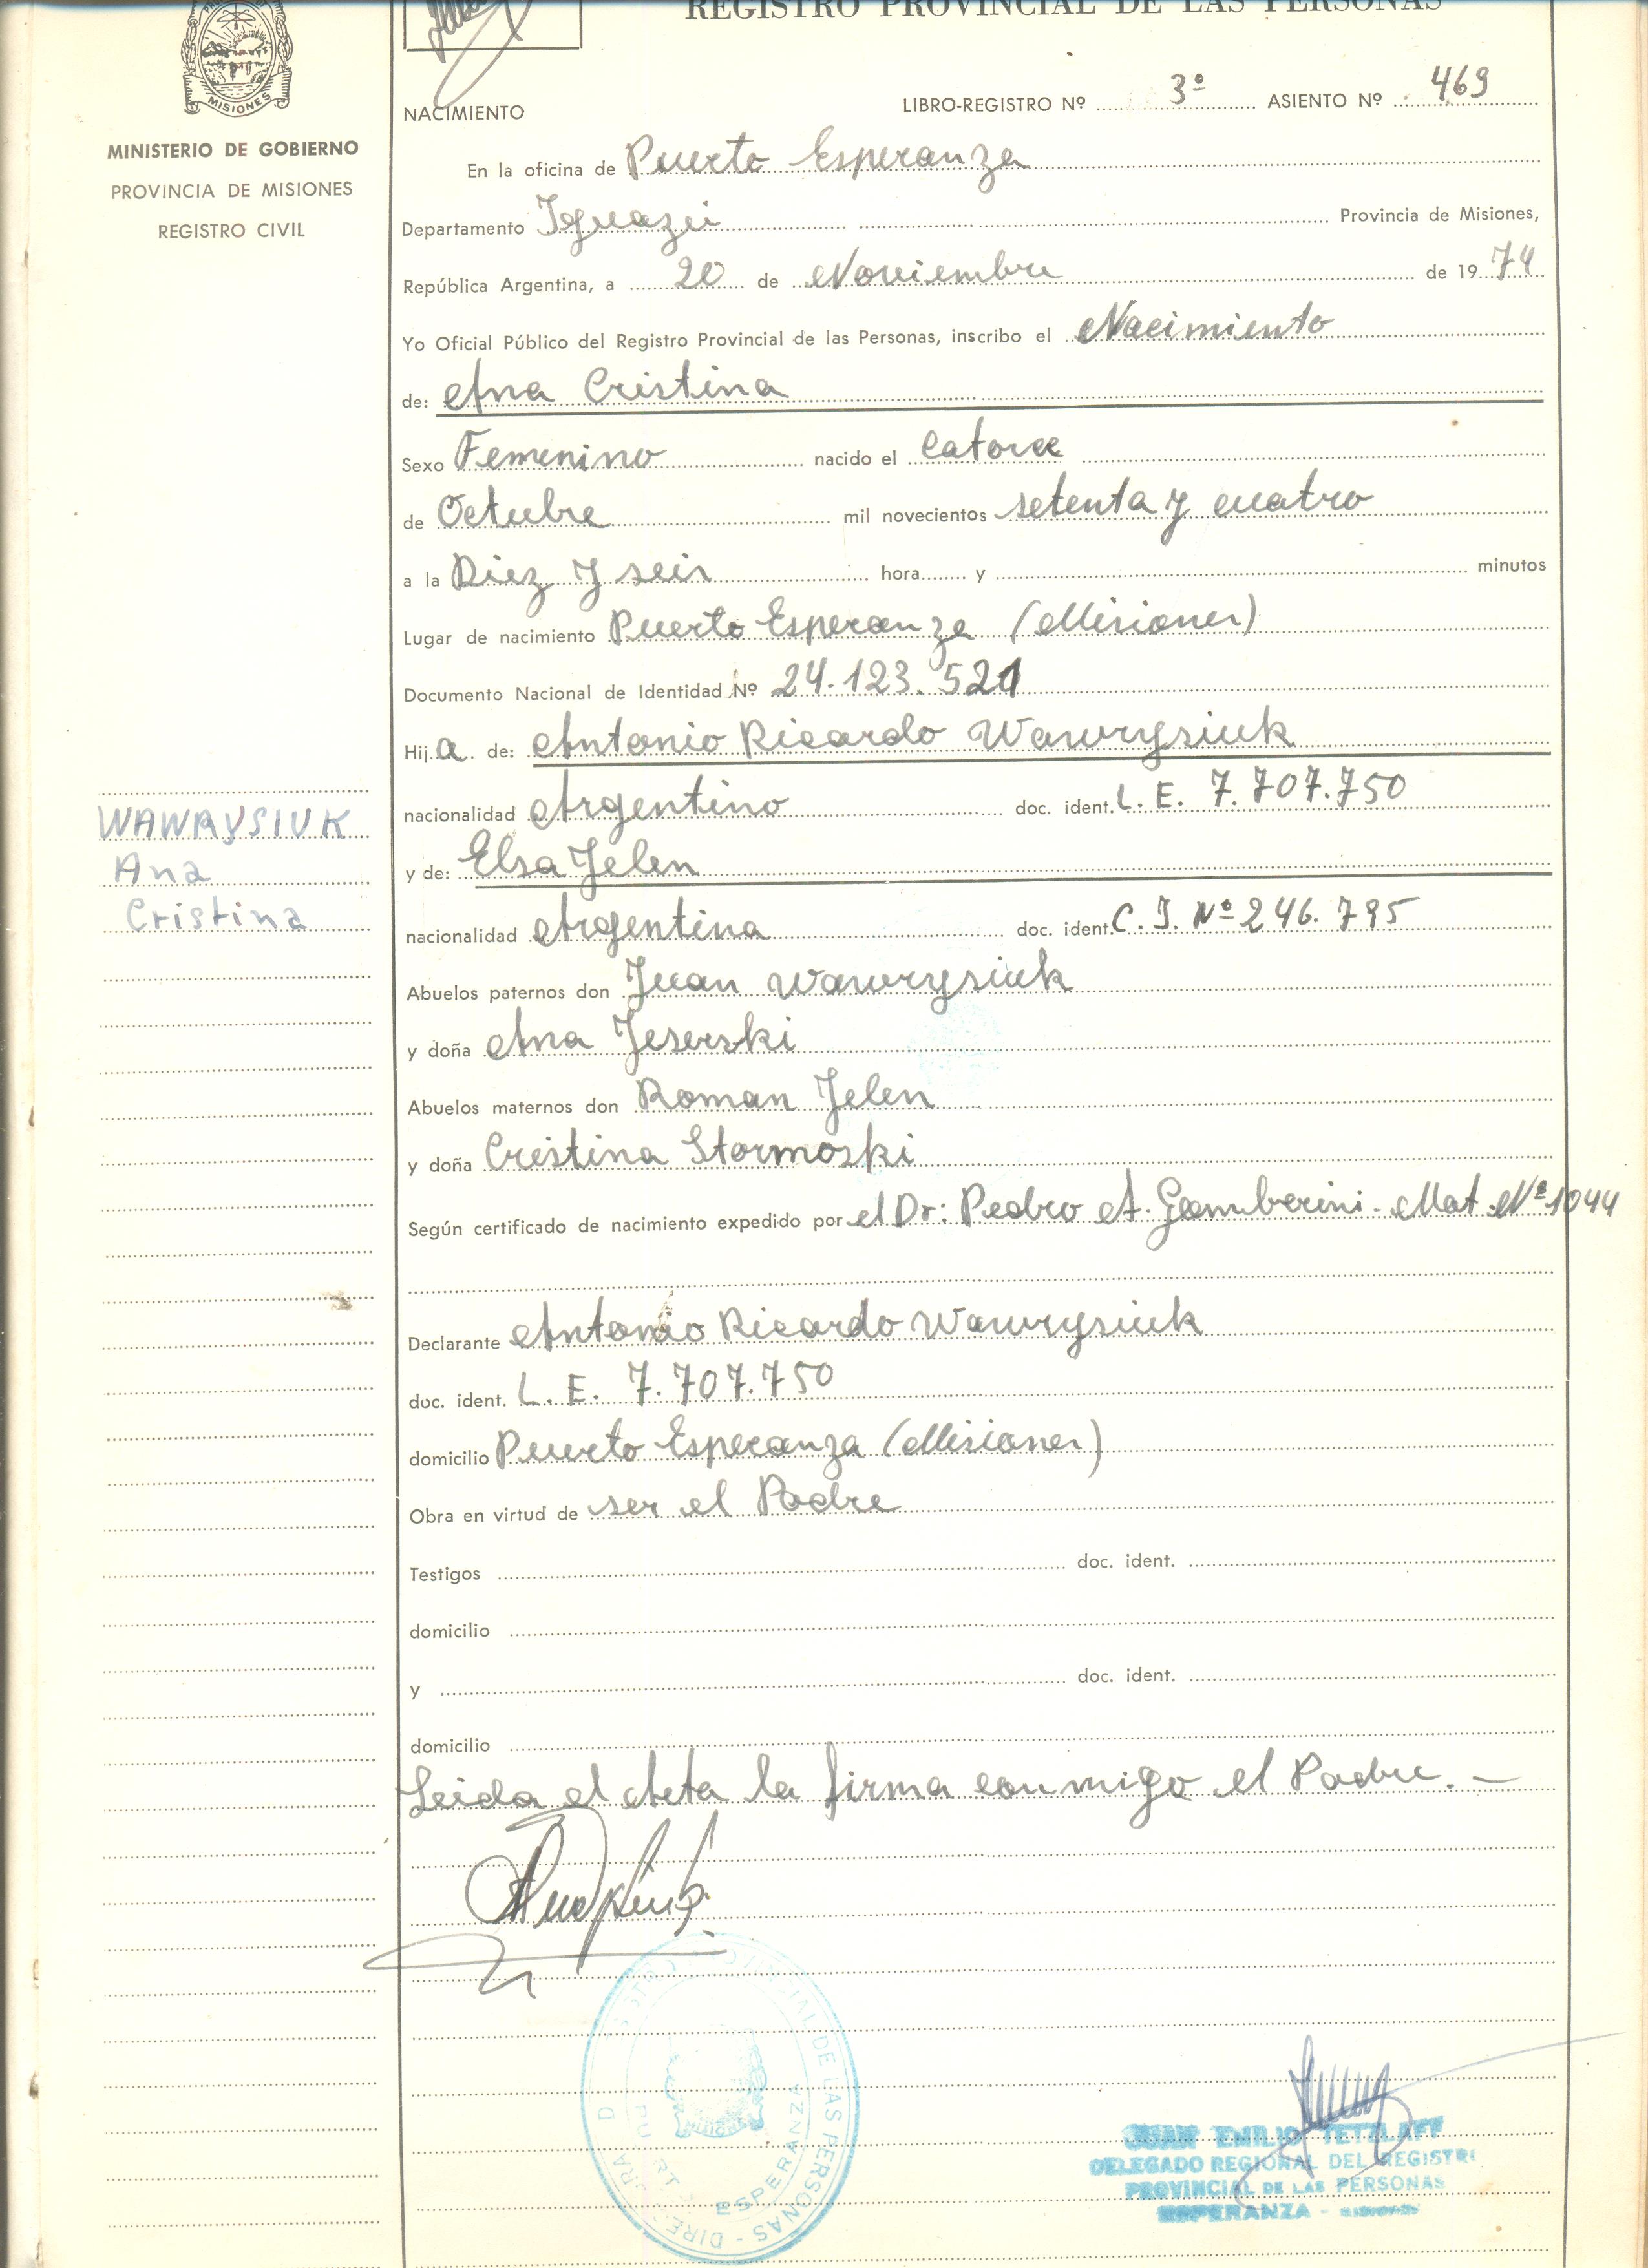 REGISTRO PROVINCIAL DE LAS PERSONAS
MISIONES
MINISTERIO DE GOBIERNO
PROVINCIA DE MISIONES
REGISTRO CIVIL
NACIMIENTO
LIBRO-REGISTRO Nº 3º ASIENTO Nº 469
En la oficina de Puerto Esperanza
Departamento Iguazú Provincia de Misiones,
República Argentina, a 20 de Noviembre de 1974
Yo Oficial Público del Registro Provincial de las Personas, inscribo el Nacimiento
de: Ana Cristina
Sexo Femenino nacido el Catorce
de Octubre mil novecientos setenta y cuatro
a la Diez y seis hora y minutos
Lugar de nacimiento Puerto Esperanza (Misiones)
Documento Nacional de Identidad Nº 24.123.521
Hija de: Antonio Ricardo Wawrysiuk
nacionalidad Argentino doc. ident. L. E. 7.707.750
WAWRYSIUK
Ana
Cristina
y de: Elsa Jelen
nacionalidad Argentina doc. ident. C. I. Nº 246.795
Abuelos paternos don Juan Wawrysiuk
y doña Ana Jeserski
Abuelos maternos don Roman Jelen
y doña Cristina Stormoski
Según certificado de nacimiento expedido por el Dr: Pedro A. Gamberini - Mat. Nº 1044
Declarante Antonio Ricardo Wawrysiuk
doc. ident. L. E. 7.707.750
domicilio Puerto Esperanza (Misiones)
Obra en virtud de ser el Padre
Testigos doc. ident.
domicilio
y doc. ident.
domicilio
Leida el Acta la firma conmigo el Padre.-
PROVINCIAL DE LAS PERSONAS - DIRE
ESPERANZA
JUAN EMILIO TETZLAFF
DELEGADO REGIONAL DEL REGISTRO
PROVINCIAL DE LAS PERSONAS
ESPERANZA - MISIONES